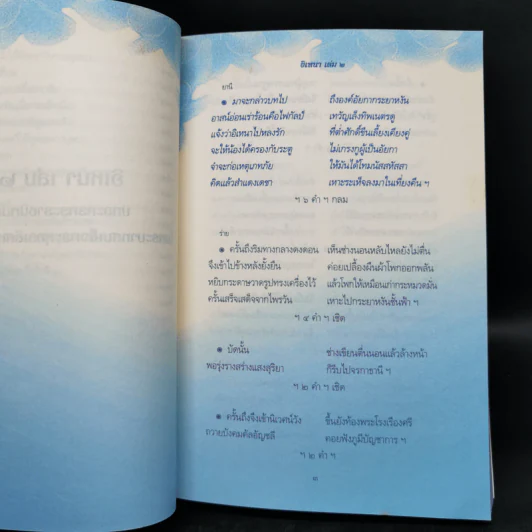 อิเหนา เล่ม ๒
ยานี
๏ มาจะกล่าวบทไป ถึงองค์อัยกากระยาหงัน
อาสน์อ่อนเร่าร้อนคือไฟกัลป์ เทวัญเล็งทิพเนตรดู
แจ้งว่าอิเหนาไปหลงรัก ที่ต่ำศักดิ์ขืนเลี้ยงเคียงคู่
จะให้น้องได้ครองกับระตู ไม่เกรงกูผู้เป็นอัยกา
จำจะก่อเหตุเภทภัย ให้มันได้โทมนัสสหัสสา
คิดแล้วสำแดงเดชา เหาะระเห็จลงมาในเที่ยงคืน ฯ
ฯ ๖ คำ ฯ กลม
ร่าย
๏ ครั้นถึงริมทางกลางดงดอน เห็นช่างนอนหลับใหลยังไม่ตื่น
จึงเข้าไปข้างหลังยั้งยืน ค่อยเปลื้องผืนผ้าโพกออกพลัน
หยิบกระดาษวาดรูปทรงเครื่องไว้ แล้วโพกให้เหมือนเก่ากระหมวดมั่น
ครั้นเสร็จเสด็จจากไพรวัน เหาะไปกระยาหงันชั้นฟ้า ฯ
ฯ ๔ คำ ฯ เชิด
๏ บัดนั้น ช่างเขียนตื่นนอนแล้วล้างหน้า
พอรุ่งรางสร่างแสงสุริยา ก็รีบไปจรกาธานี ฯ
ฯ ๒ คำ ฯ เชิด
๏ ครั้นถึงจึงเข้านิเวศน์วัง ขึ้นยังท้องพระโรงเรืองศรี
ถวายบังคมคัลอัญชลี คอยฟังภูมีบัญชาการ ฯ
ฯ ๒ คำ ฯ
๑